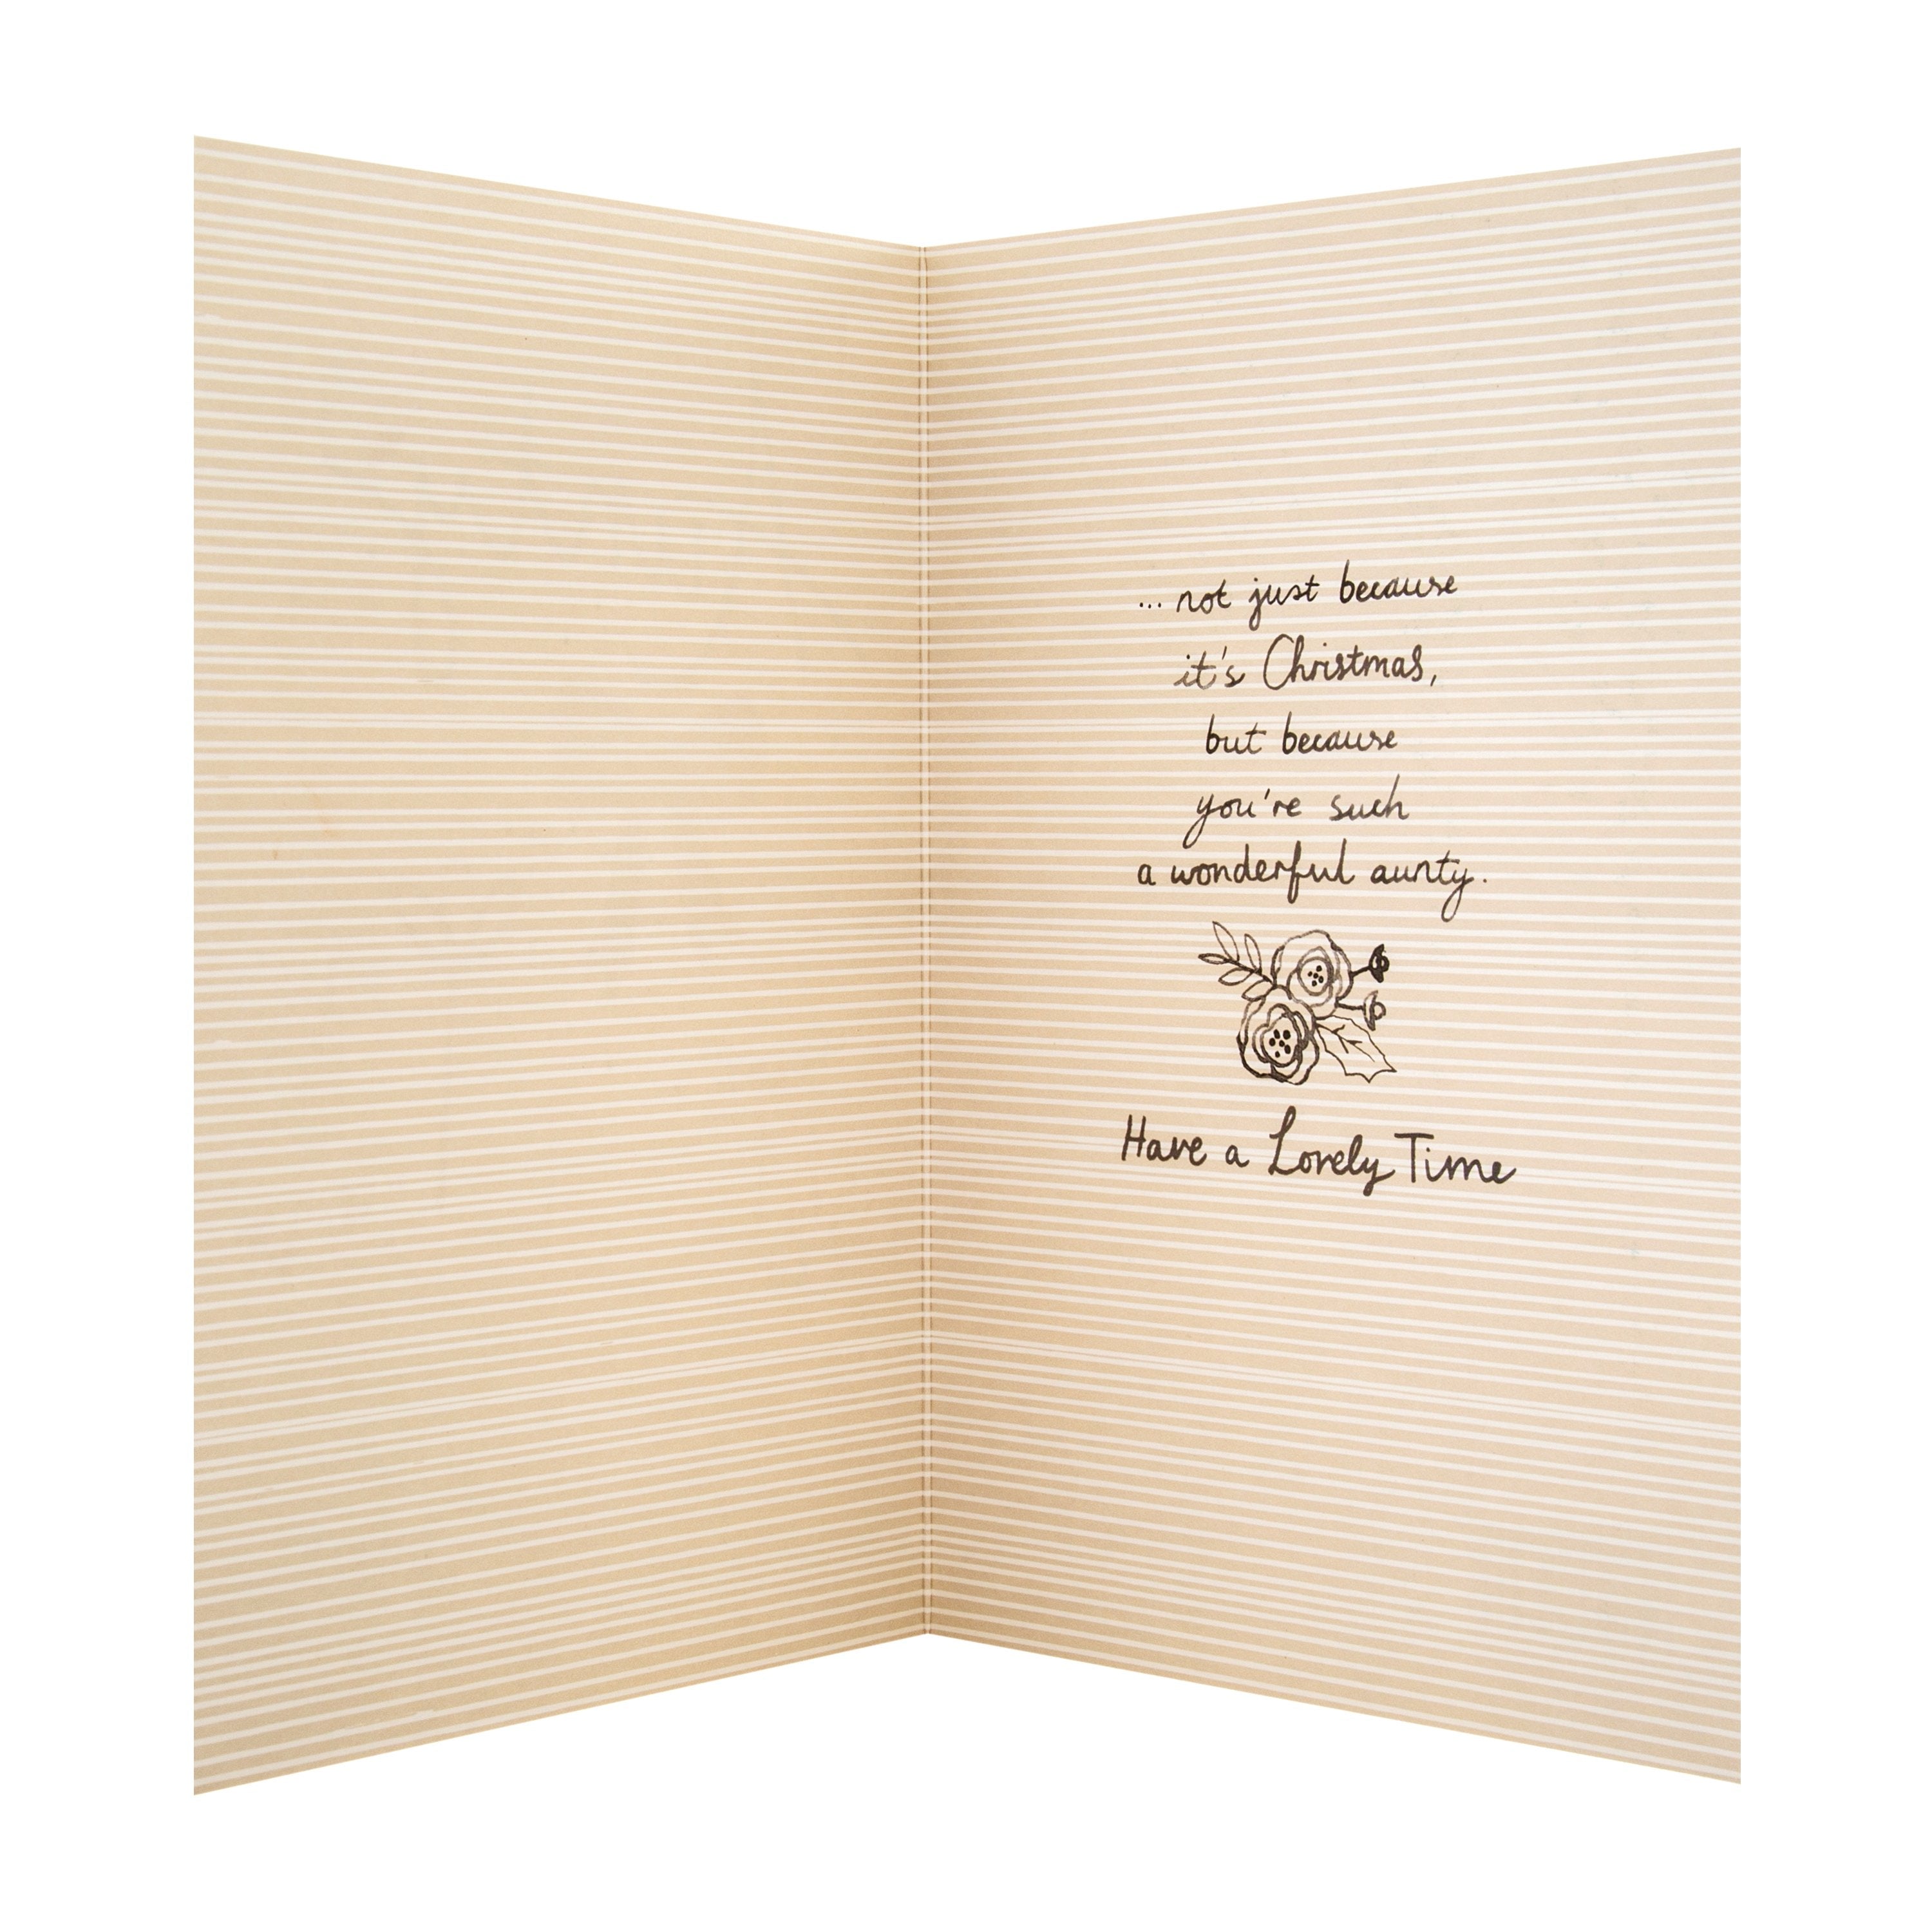 ... not just because
it's Christmas,
but because
you're such
a wonderful aunty.
Have a Lovely Time